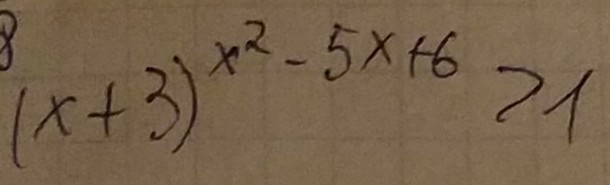 8
(x+3)^{x^2-5x+6} >1